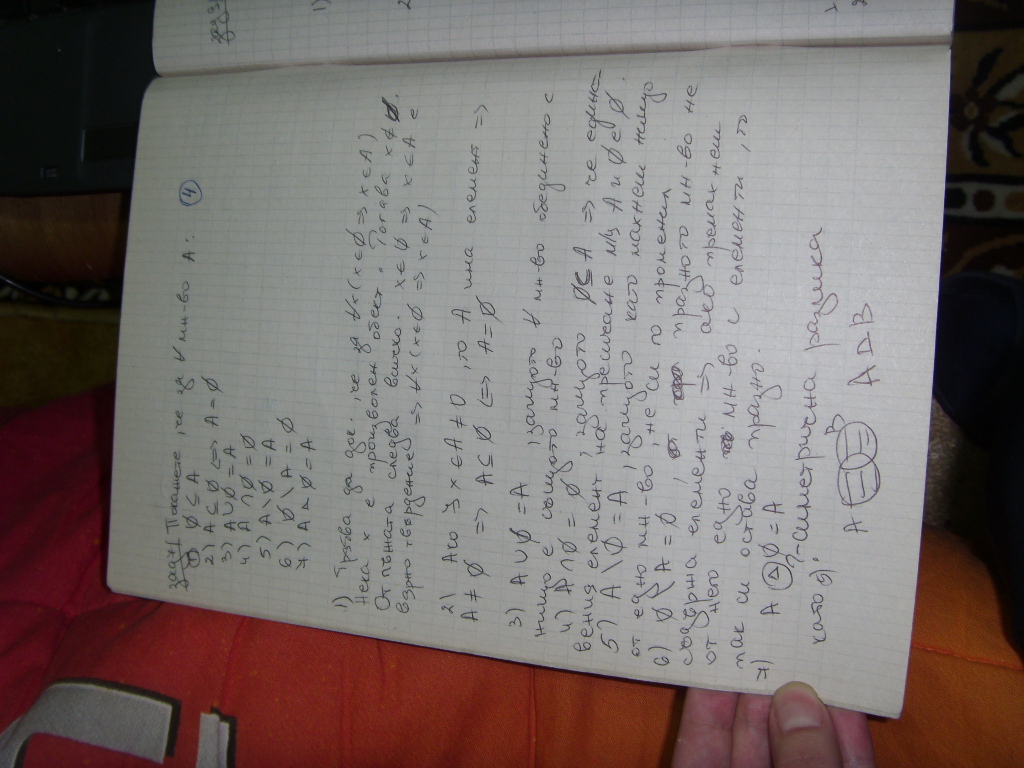 зад.1 | Покажете, че за ∀ мн-во A: (4)
1) ∅ ⊆ A
2) A ⊆ ∅ <=> A = ∅
3) A ∪ ∅ = A
4) A ∩ ∅ = ∅
5) A \ ∅ = A
6) ∅ \ A = ∅
7) A Δ ∅ = A
1) Трябва да док., че за ∀x (x ∈ ∅ => x ∈ A)
Нека x е произволен обект. Тогава x ∉ ∅.
От лъжата следва всичко. x ∈ ∅ => x ∈ A е
вярно твърдение => ∀x (x ∈ ∅ => x ∈ A)
2) Ако ∃x ∈ A ≠ 0, то A има елемент =>
A ≠ ∅ => A ⊆ ∅ <=> A = ∅
3) A ∪ ∅ = A, защото ∀ мн-во обединено с
нищо е същото мн-во
4) A ∩ ∅ = ∅, защото ∅ ⊆ A => че единст-
вения елемент на пресичане м/у A и ∅ е ∅.
5) A \ ∅ = A, защото като махнем нищо
от едно мн-во, не си го променил
6) ∅ \ A = ∅, празното мн-во не
съдържа елементи => ако премахнем
от него едно мн-во с елементи, то
пак си остава празно.
7) A Δ ∅ = A
?-симетрична разлика
като 5):
A B A Δ B
зад 3
1)
2